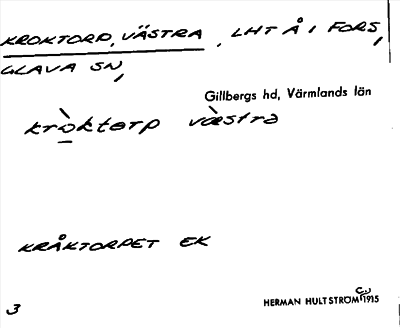 KROKTORP, VÄSTRA, LHT Å I FORS,
GLAVA SN,
Gillbergs hd, Värmlands län
krò̠ktorp væ̀stra
KRÅKTORPET EK
HERMAN HULTSTRÖM 1915
3